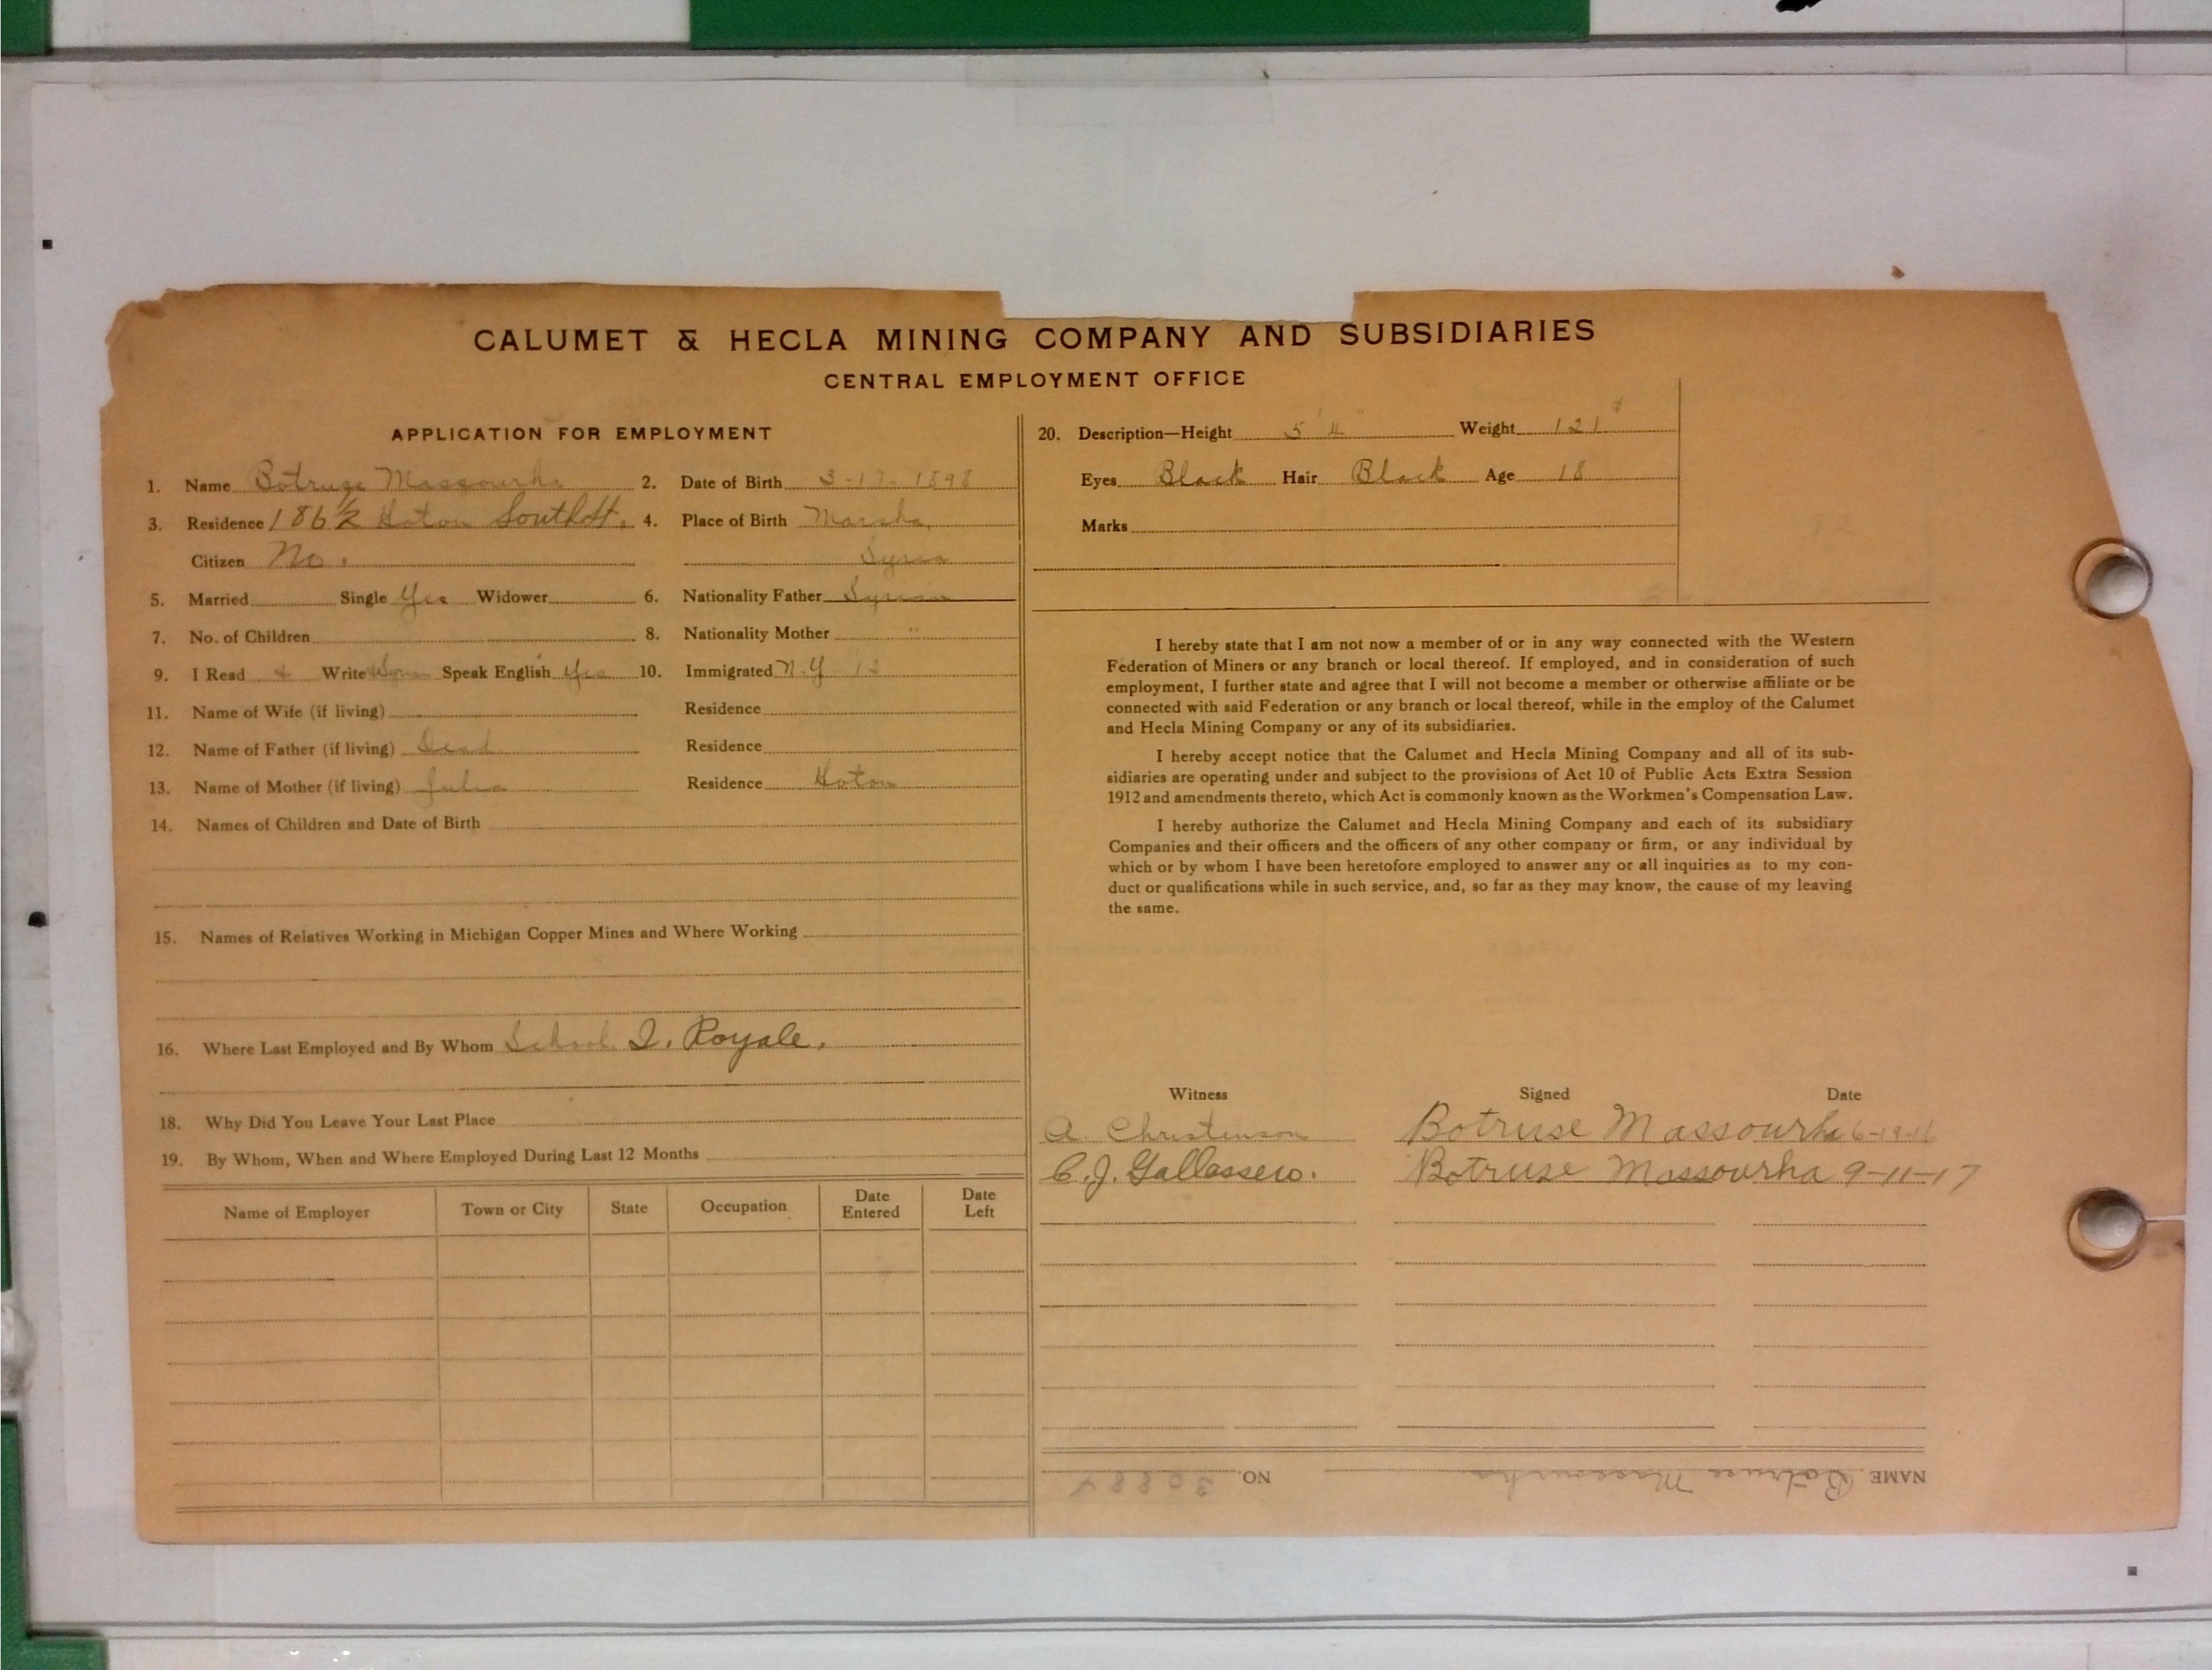 CALUMET & HECLA MINING COMPANY AND SUBSIDIARIES
CENTRAL EMPLOYMENT OFFICE
APPLICATION FOR EMPLOYMENT
1. Name Botruse Massourha 2. Date of Birth 3-17-1898
3. Residence 186½ Hoton South St. 4. Place of Birth Marsha,
Citizen No. Syria
5. Married Single Yes Widower 6. Nationality Father Syrian
7. No. of Children 8. Nationality Mother "
9. I Read & Write Syrian Speak English Yes 10. Immigrated N.Y '12
11. Name of Wife (if living) Residence
12. Name of Father (if living) Dead Residence
13. Name of Mother (if living) Julia Residence Hoton
14. Names of Children and Date of Birth
15. Names of Relatives Working in Michigan Copper Mines and Where Working
16. Where Last Employed and By Whom School I. Royale.
18. Why Did You Leave Your Last Place
19. By Whom, When and Where Employed During Last 12 Months
Name of Employer Town or City State Occupation Date Entered Date Left
20. Description—Height 5' 4" Weight 121#
Eyes Black Hair Black Age 18
Marks
I hereby state that I am not now a member of or in any way connected with the Western
Federation of Miners or any branch or local thereof. If employed, and in consideration of such
employment, I further state and agree that I will not become a member or otherwise affiliate or be
connected with said Federation or any branch or local thereof, while in the employ of the Calumet
and Hecla Mining Company or any of its subsidiaries.
I hereby accept notice that the Calumet and Hecla Mining Company and all of its sub-
sidiaries are operating under and subject to the provisions of Act 10 of Public Acts Extra Session
1912 and amendments thereto, which Act is commonly known as the Workmen's Compensation Law.
I hereby authorize the Calumet and Hecla Mining Company and each of its subsidiary
Companies and their officers and the officers of any other company or firm, or any individual by
which or by whom I have been heretofore employed to answer any or all inquiries as to my con-
duct or qualifications while in such service, and, so far as they may know, the cause of my leaving
the same.
Witness Signed Date
A. Christenson Botruse Massourha 6-19-16
C. J. Gallassero. Botruse Massourha 9-11-17
NAME Botruse Massourha NO.